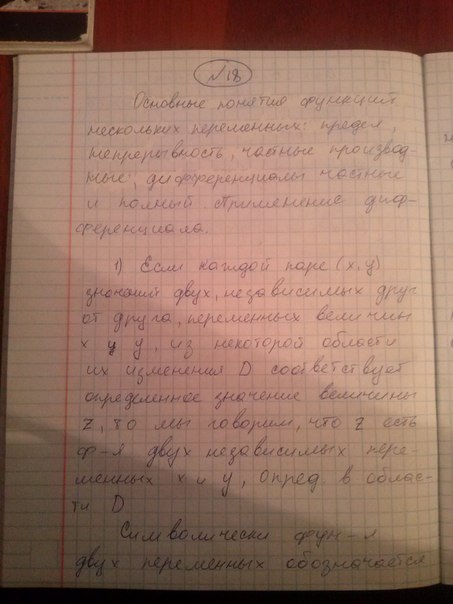 №18
Основные понятия функций
нескольких переменных: предел,
непрерывность, частные производ-
ные, дифференциалы частные
и полный. Применение диф-
ференциала.
1) Если каждой паре (x,y)
значений двух, независимых друг
от друга, переменных величин
x и y, из некоторой области
их изменения D соответствует
определенное значение величины
z, то мы говорим, что z есть
ф-я двух независимых пере-
менных x и y, опред. в облас-
ти D
Символически фун-я
двух переменных обозначается